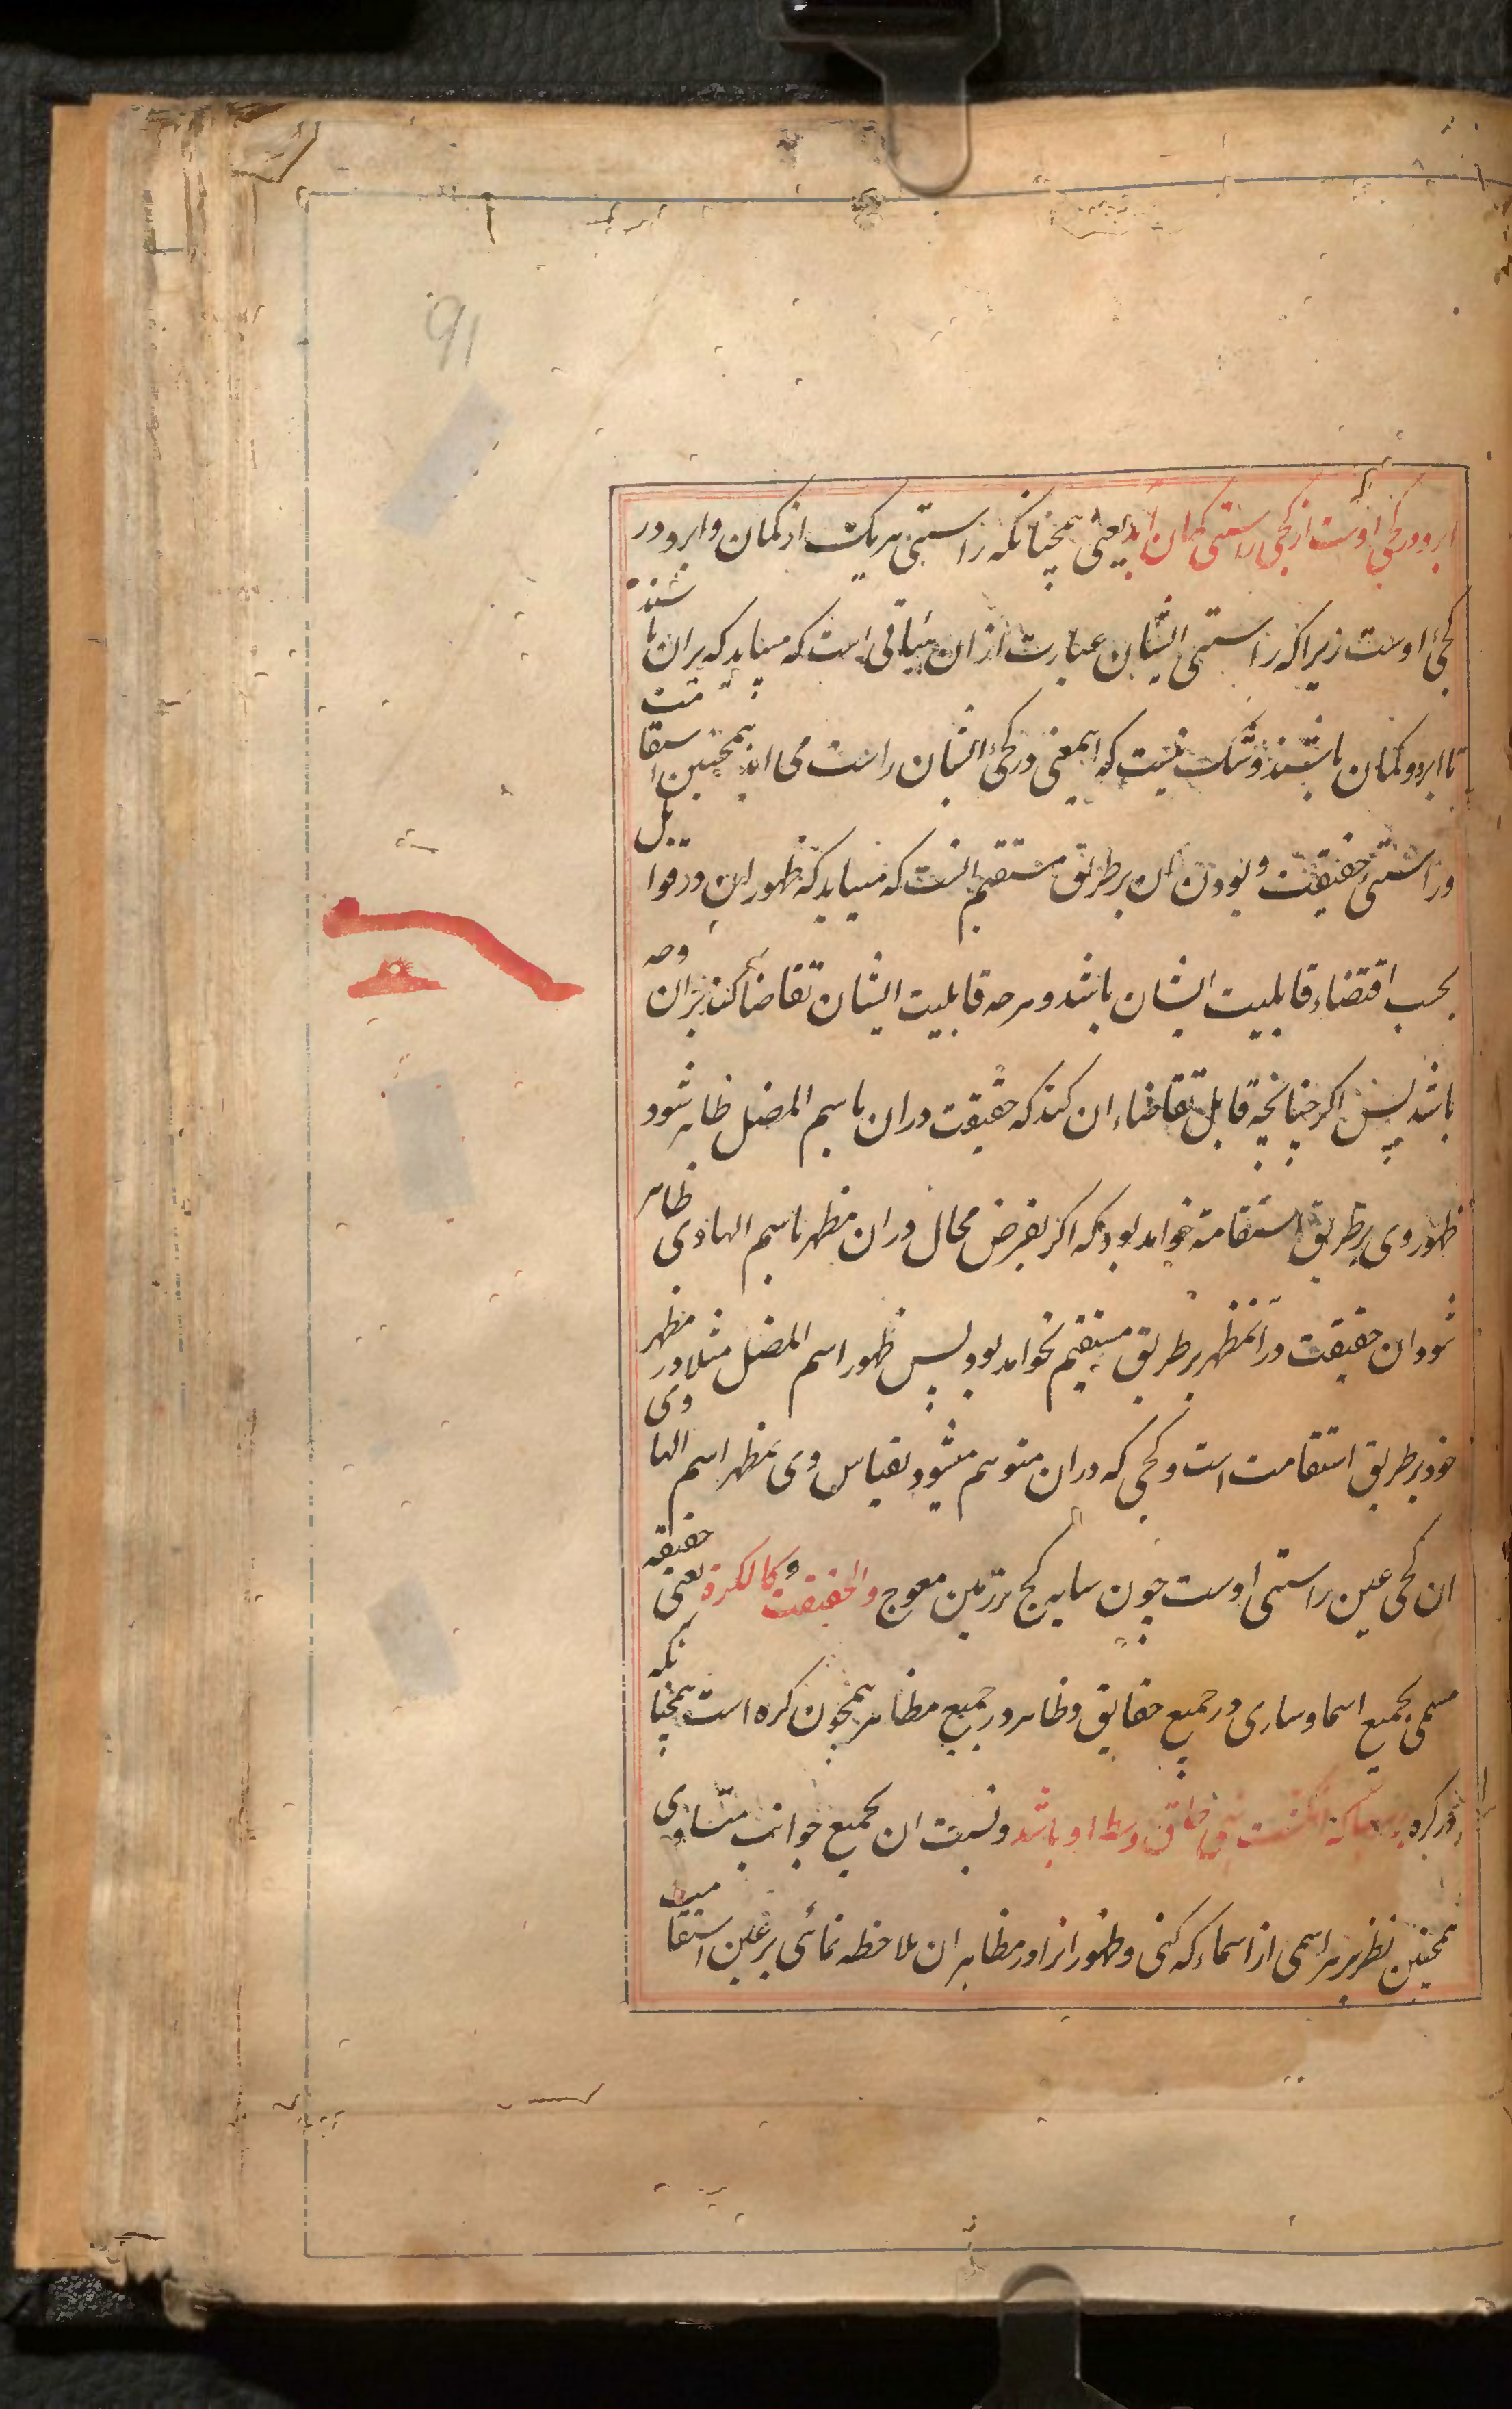 91
ابرو در کجی اوست از کجی راستی کمان امد یعنی همچنانکه راستی هریک از کمان و ابرو در
کجئ اوست زیرا که راستی ایشان عبارت از ان هیأتی است که میباید که بران باشند
تا ابرو و کمان باشند و شک نیست که اینمعنی در کجئ ایشان راست می اید همچنین استقامت
و راستی حقیقت و بودن ان بر طریق مستقیم انست که میباید که ظهور ان در قوابل
بحسب اقتضاء قابلیت ایشان باشد و هرچه قابلیت ایشان تقاضا کند بران وجه
باشد پس اکر چنانچه قابل تقاضاء ان کند که حقیقت دران باسم المضل ظاهر شود
ظهور وی بر طریق استقامة خواهد بود که اکر بفرض محال دران مظهر باسم الهادی ظاهر
شود ان حقیقت در انمظهر بر طریق مستقیم نخواهد بود پس ظهور اسم المضل مثلا در مظهر
خود بر طریق استقامت است و کجی که دران متوهم میشود بقیاس وی بمظهر اسم الهادی
ان کجی عین راستی اوست چون سایه کج بر زمین معوج والحقیقت کالکرة یعنی حقیقه
مسمی بجمیع اسما و ساری در جمیع حقایق و ظاهر در جمیع مظاهر همچون کره است همچنانکه
در کره بر هر جا که انکشت نهی حاق وسط او باشد و نسبت ان بجمیع جوانب متساوی
همچنین نظر بر هر اسمی از اسماء که کنی و ظهور انرا در مظاهر ان ملاحظه نمائی بر عین استقامت